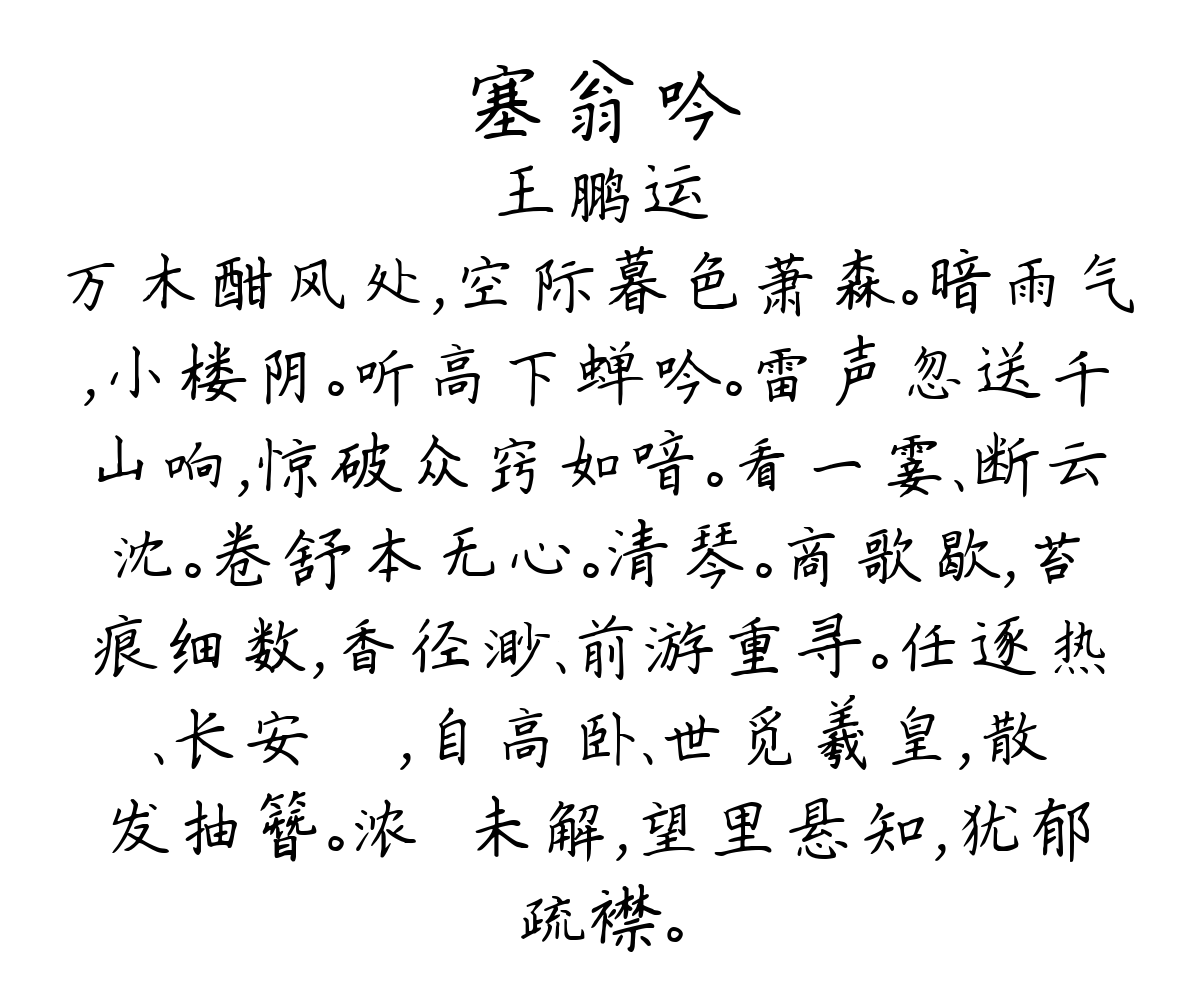 塞翁吟
王鹏运
万木酣风处,空际暮色萧森。暗雨气
,小楼阴。听高下蝉吟。雷声忽送千
山响,惊破众窍如喑。看一霎、断云
沈。卷舒本无心。清琴。商歌歇,苔
痕细数,香径渺、前游重寻。任逐热
、长安 ,自高卧、世觅羲皇,散
发抽簪。浓 未解,望里悬知,犹郁
疏襟。